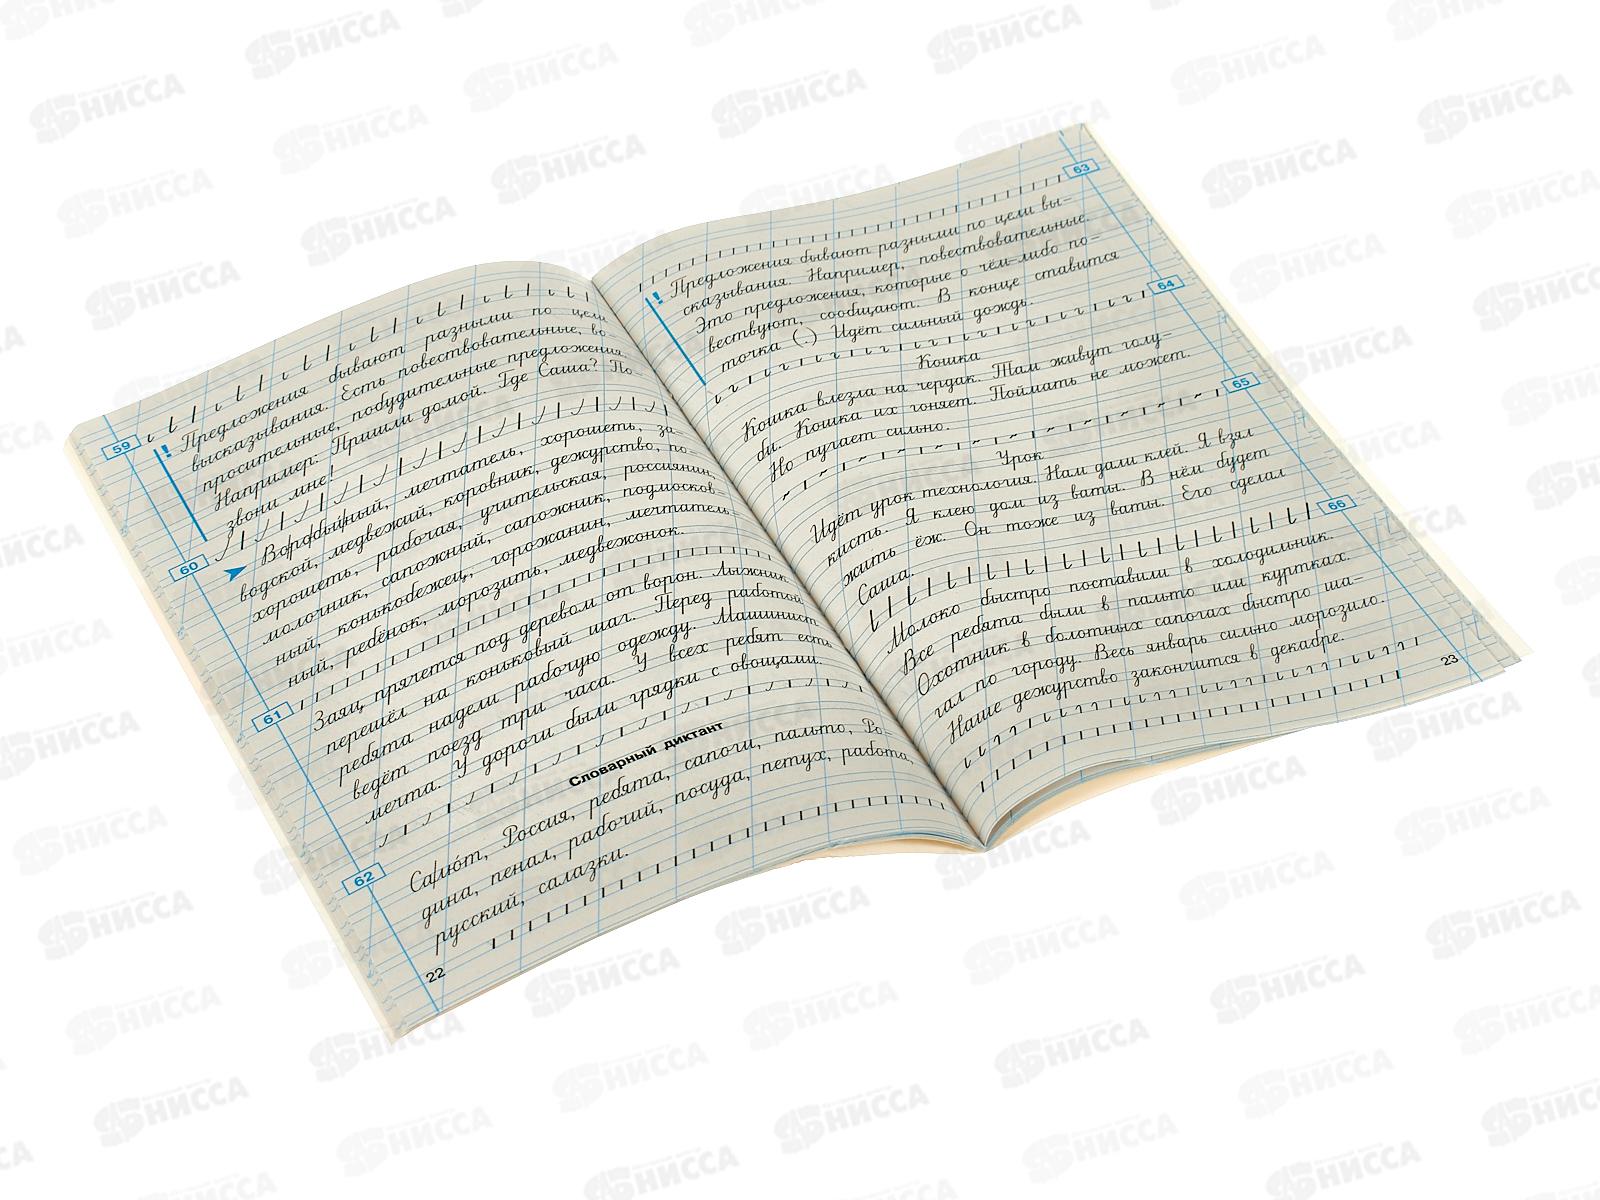 59
! Предложения бывают разными по цели
высказывания. Есть повествовательные, во-
просительные, побудительные предложения.
Например: Пришли домой. Где Саша? По-
звони мне!
60
Воробьиный, мечтатель, хорошеть, за-
водской, медвежий, коровник, дежурство, по-
хорошеть, рабочая, учительская, россиянин,
молочник, сапожный, сапожник, подмосков-
ный, конькобежец, горожанин, мечтатель-
ный, ребёнок, морозить, медвежонок.
61
Заяц прячется под деревом от ворон. Лыжник
перешёл на коньковый шаг. Перед работой
ребята надели рабочую одежду. Машинист
ведёт поезд три часа. У всех ребят есть
мечта. У дороги были грядки с овощами.
Словарный диктант
62
Салют, Россия, ребята, сапоги, пальто, Ро-
дина, пенал, рабочий, посуда, петух, работа,
русский, салазки.
22
63
! Предложения бывают разными по цели вы-
сказывания. Например, повествовательные.
Это предложения, которые о чём-либо по-
вествуют, сообщают. В конце ставится
точка (.) Идёт сильный дождь.
64
Кошка
Кошка влезла на чердак. Там живут голу-
би. Кошка их гоняет. Поймать не может.
Но пугает сильно.
65
Урок
Идёт урок технология. Нам дали клей. Я взял
кисть. Я клею дом из ваты. В нём будет
жить ёж. Он тоже из ваты. Его сделал
Саша.
66
Молоко быстро поставили в холодильник.
Все ребята были в пальто или куртках.
Охотник в болотных сапогах быстро ша-
гал по городу. Весь январь сильно морозило.
Наше дежурство закончится в декабре.
23
НИССА